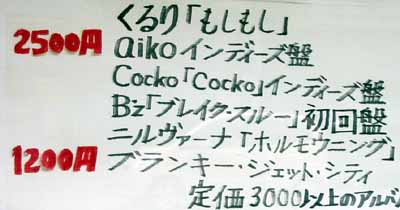 くるり「もしもし」
2500円 aikoインディーズ盤
Cocko「Cocko」インディーズ盤
Bz「ブレイク・スルー」初回盤
ニルヴァーナ「ホルモウニング」
1200円 ブランキー・ジェット・シティ
定価3000以上のアルバ